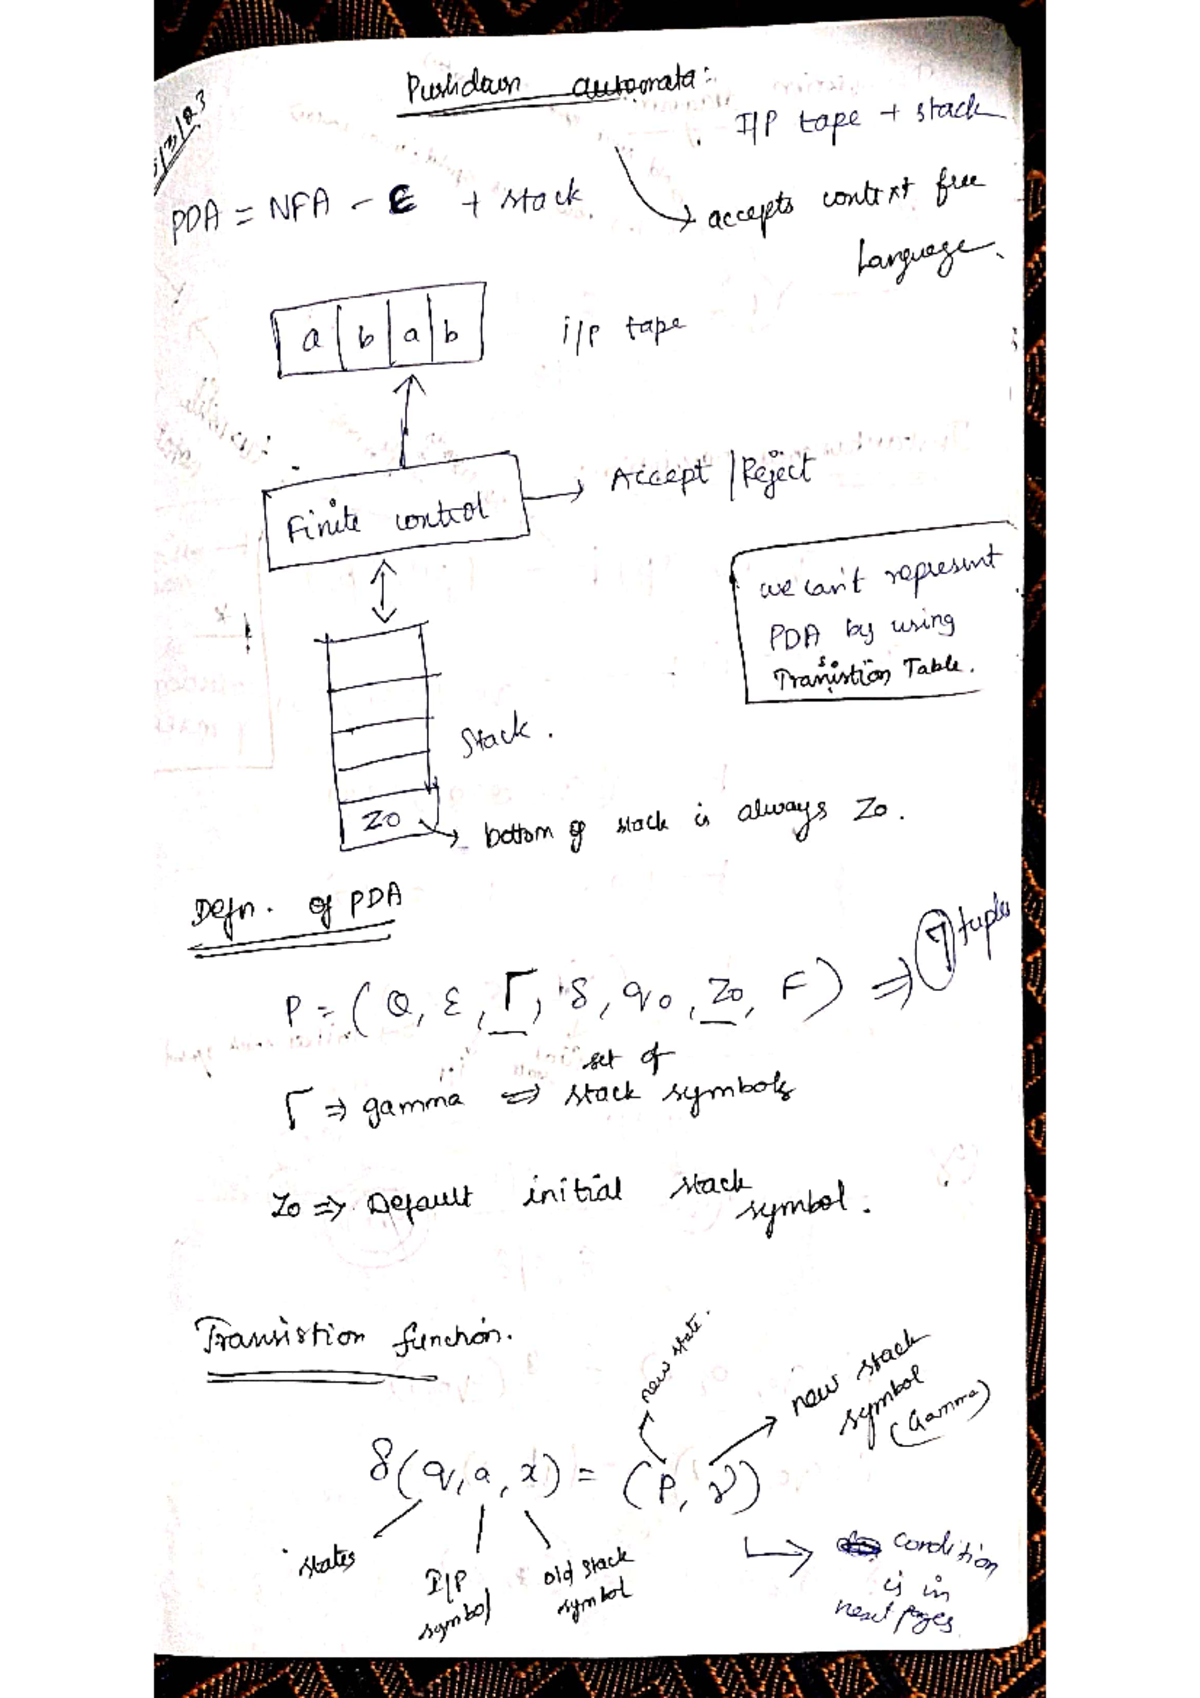 Pushdown automata:
I/P tape + stack
PDA = NFA - ε + stack
accepts context free
language.
a b a b
i/p tape
Finite control
Accept | Reject
we can't represent
PDA by using
Tranistion Table.
s
Stack.
Z0
bottom of stack is always Z0.
Defn. of PDA
P = (Q, Ɛ, Γ, δ, q0, Z0, F) ⇒ 7 tuples
set of
Γ ⇒ gamma ⇒ stack symbols
Z0 ⇒ Default initial stack
symbol.
Transistion function.
new state.
new stack
symbol
(Gamma)
δ(q, a, x) = (P, γ)
states
I/P
symbol
old stack
symbol
condition
is in
next pages